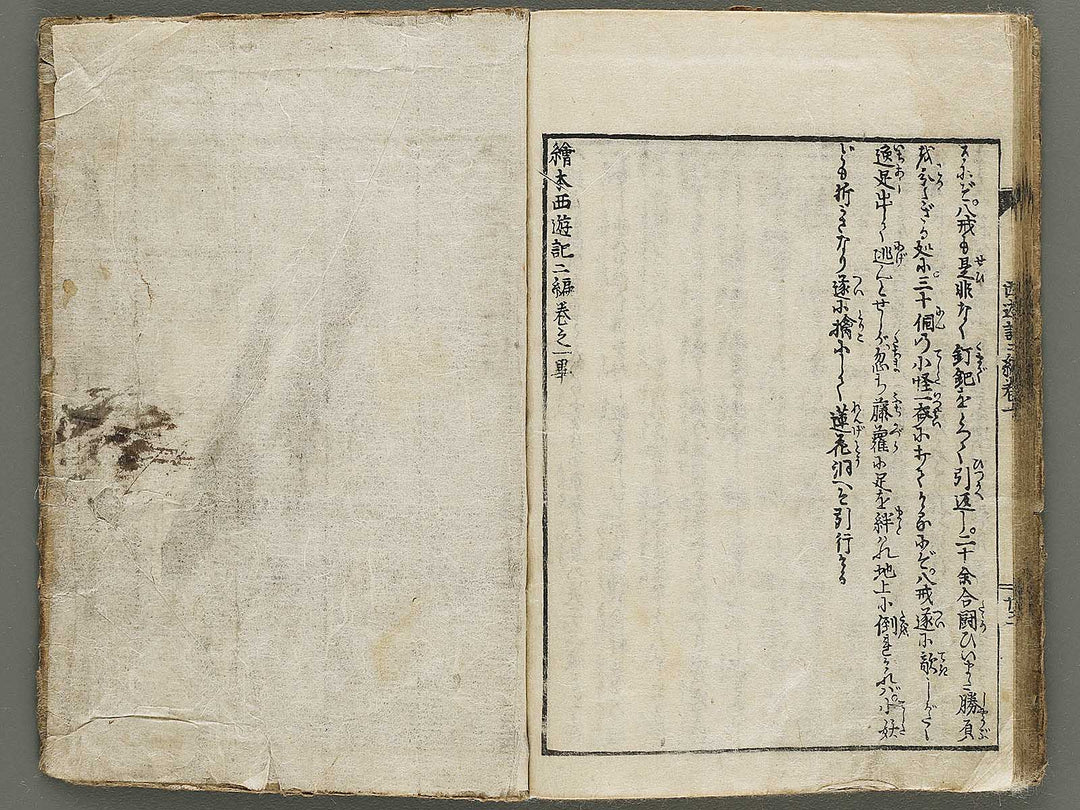 西遊記二編巻一
廿三
るにぞ。八戒も是非なく釘鈀をもつて引返し。二十余合闘ひいまだ勝負
を分たざる処に。三十個の小怪一にぞ。八戒遂に敵しがたく
逸足出して逃んとせしが忽ち藤蘿に足を絆はれ地上に倒れければ。小妖
ども折かさなり遂に擒にして蓮花洞へぞ引行ける
繪本西遊記二編巻之一畢